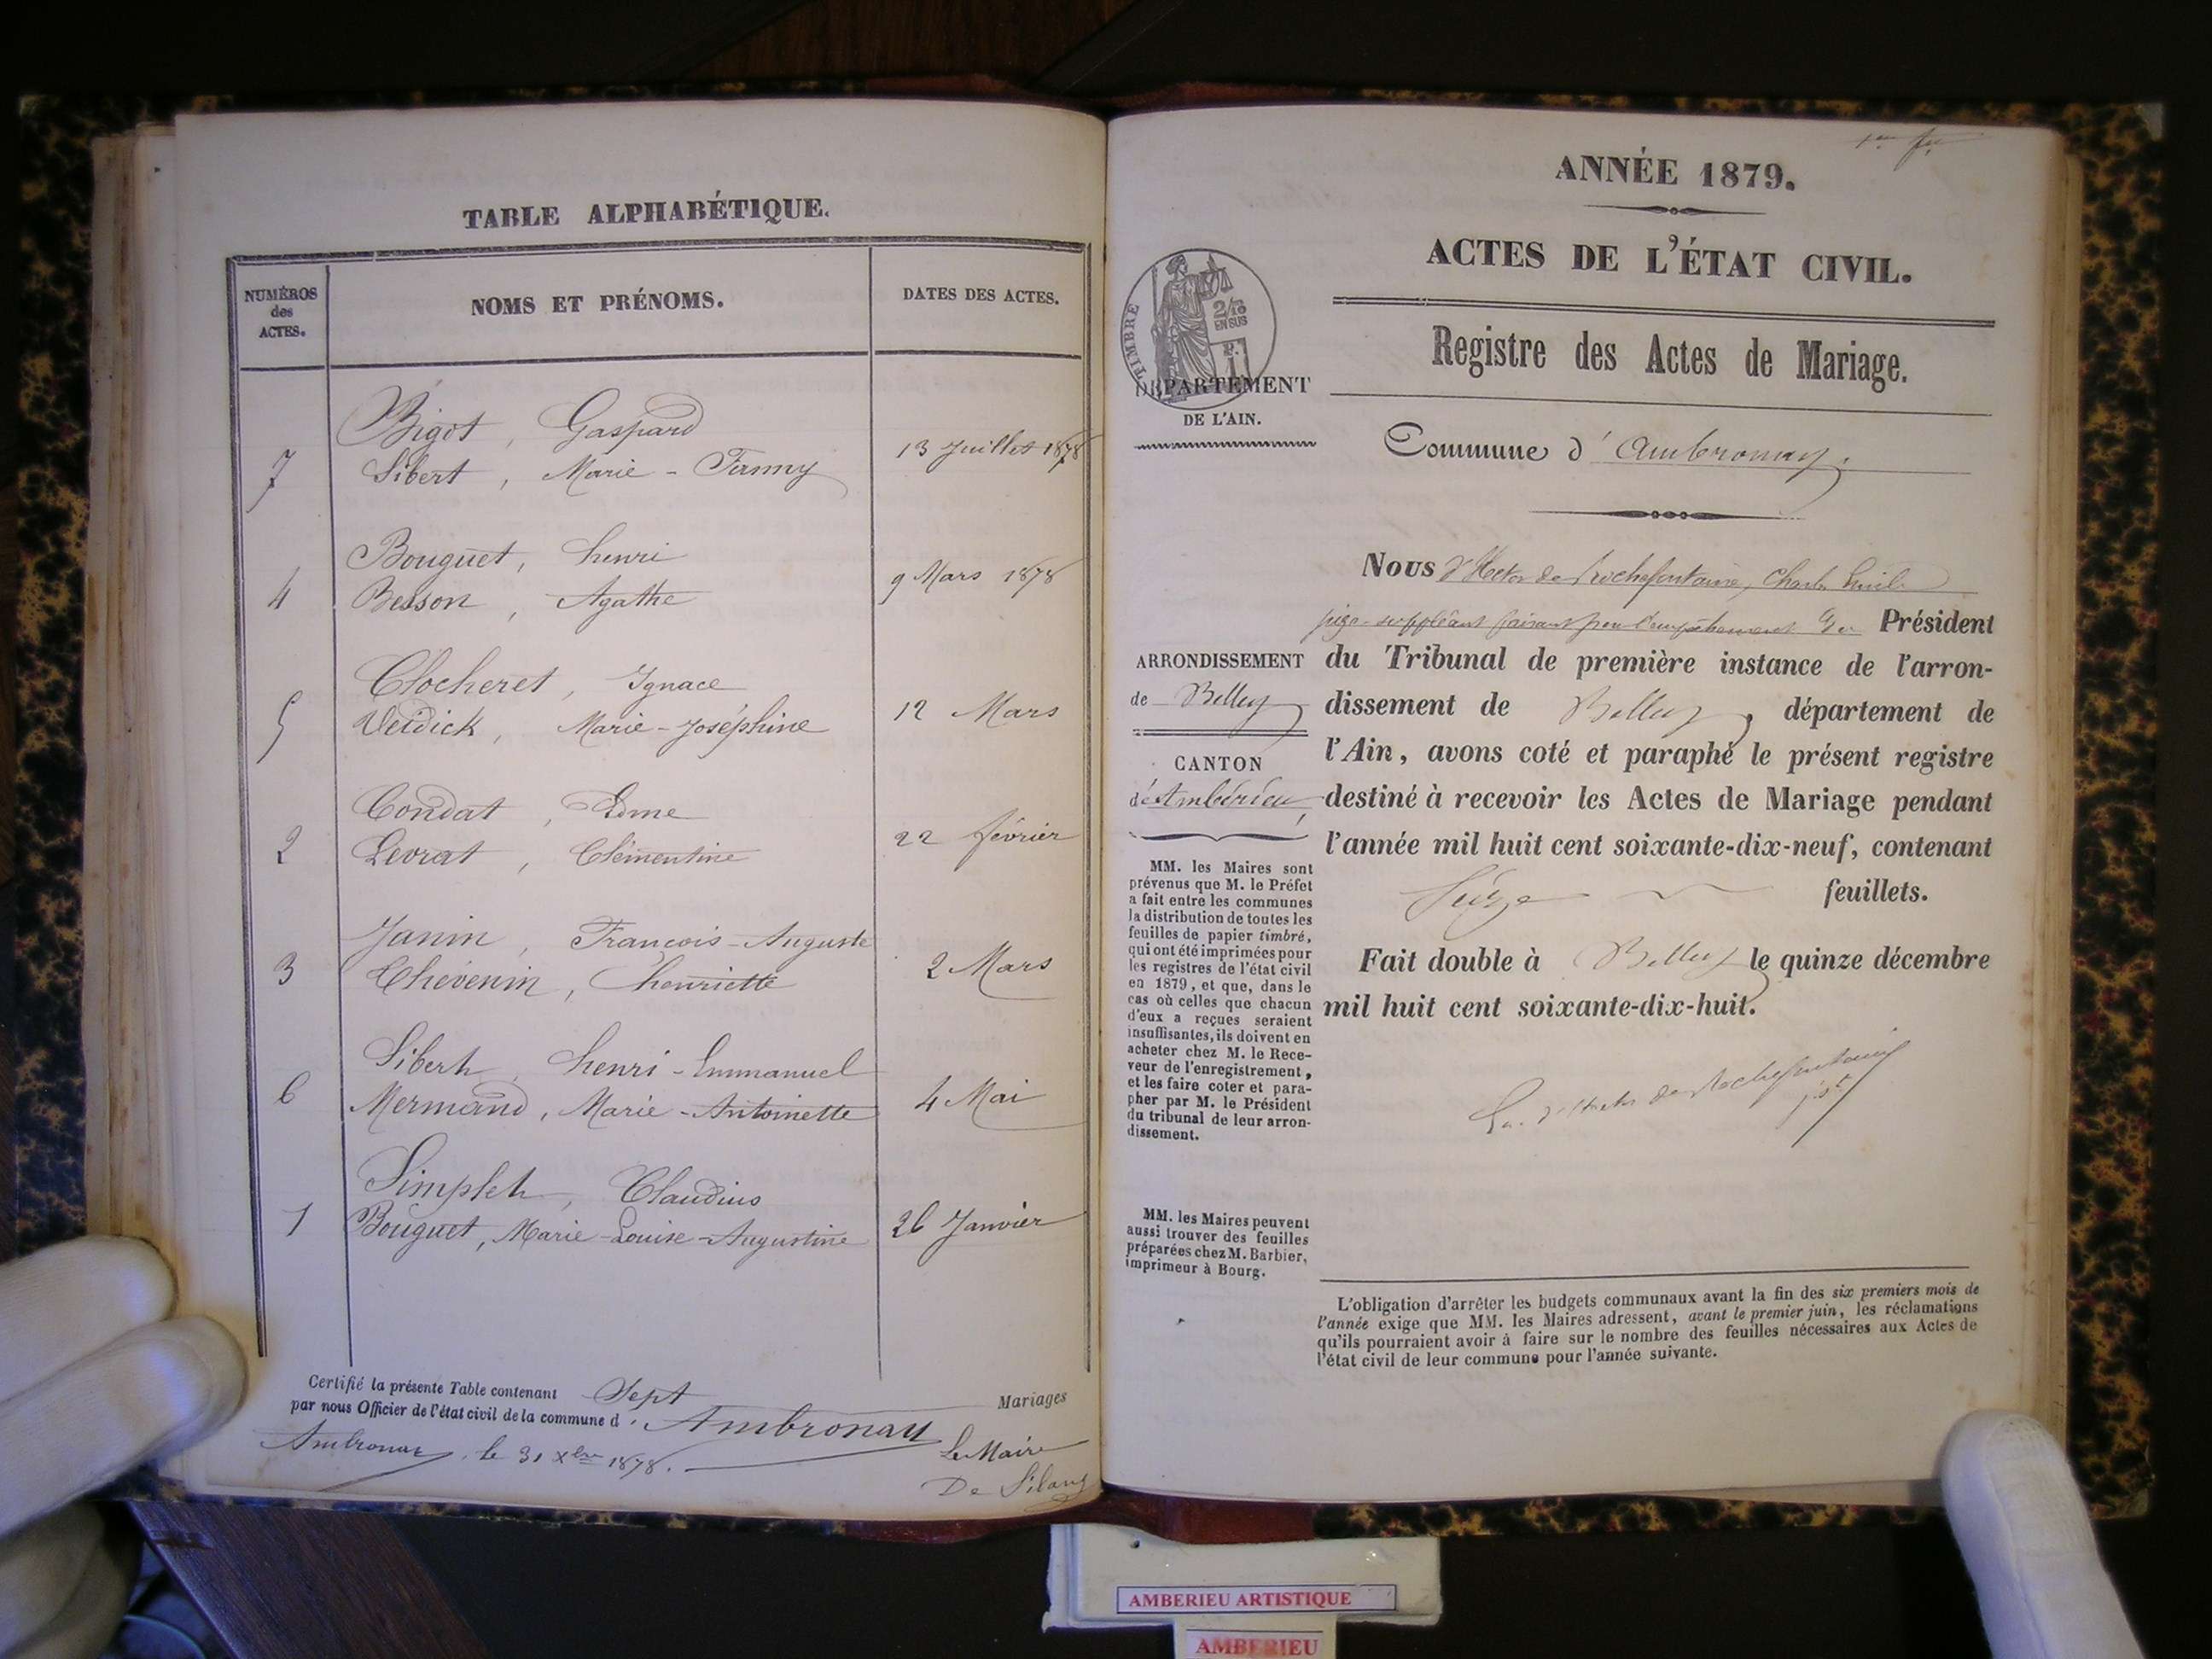 TABLE ALPHABÉTIQUE.
NUMÉROS des ACTES.
NOMS ET PRÉNOMS.
DATES DES ACTES.
Bigot, Gaspard
7 Sibert, Marie-Fanny 13 Juillet 1878
Bouguet, henri
4 Besson, Agathe 9 Mars 1878
Clocheret, Ignace
5 Veidick, Marie-Joséphine 12 Mars
Condat, Edme
2 Levrat, Clémentine 22 février
Janin, François-Auguste
3 Chevenin, henriette 2 Mars
Sibert, henri-Emmanuel
6 Mermand, Marie-Antoinette 4 Mai
Simplet, Claudius
1 Bouguet, Marie-Louise-Augustine 26 Janvier
Certifié la présente Table contenant Sept Mariages
par nous Officier de l'état civil de la commune d'Ambronay
Ambronay, le 31 Xbre 1878.
Le Maire
De Silans
ANNÉE 1879.
ACTES DE L'ÉTAT CIVIL.
Registre des Actes de Mariage.
TIMBRE
2/10 EN SUS
DÉPARTEMENT
DE L'AIN.
Commune d'Ambronay.
Nous d'Hector de Rochefontaine, Charles Emile
juge-suppléant faisant pour l'empêchement du Président
du Tribunal de première instance de l'arron-
dissement de Belley, département de
l'Ain, avons coté et paraphé le présent registre
destiné à recevoir les Actes de Mariage pendant
l'année mil huit cent soixante-dix-neuf, contenant
Seize feuillets.
Fait double à Belley le quinze décembre
mil huit cent soixante-dix-huit.
d'Hector de Rochefontaine
ARRONDISSEMENT
de Belley
CANTON
d'Ambérieu
MM. les Maires sont
prévenus que M. le Préfet
a fait entre les communes
la distribution de toutes les
feuilles de papier timbré,
qui ont été imprimées pour
les registres de l'état civil
en 1879, et que, dans le
cas où celles que chacun
d'eux a reçues seraient
insuffisantes, ils doivent en
acheter chez M. le Rece-
veur de l'enregistrement,
et les faire coter et para-
pher par M. le Président
du tribunal de leur arron-
dissement.
MM. les Maires peuvent
aussi trouver des feuilles
préparées chez M. Barbier,
imprimeur à Bourg.
L'obligation d'arrêter les budgets communaux avant la fin des six premiers mois de
l'année exige que MM. les Maires adressent, avant le premier juin, les réclamations
qu'ils pourraient avoir à faire sur le nombre des feuilles nécessaires aux Actes de
l'état civil de leur commune pour l'année suivante.
AMBERIEU ARTISTIQUE
AMBERIEU